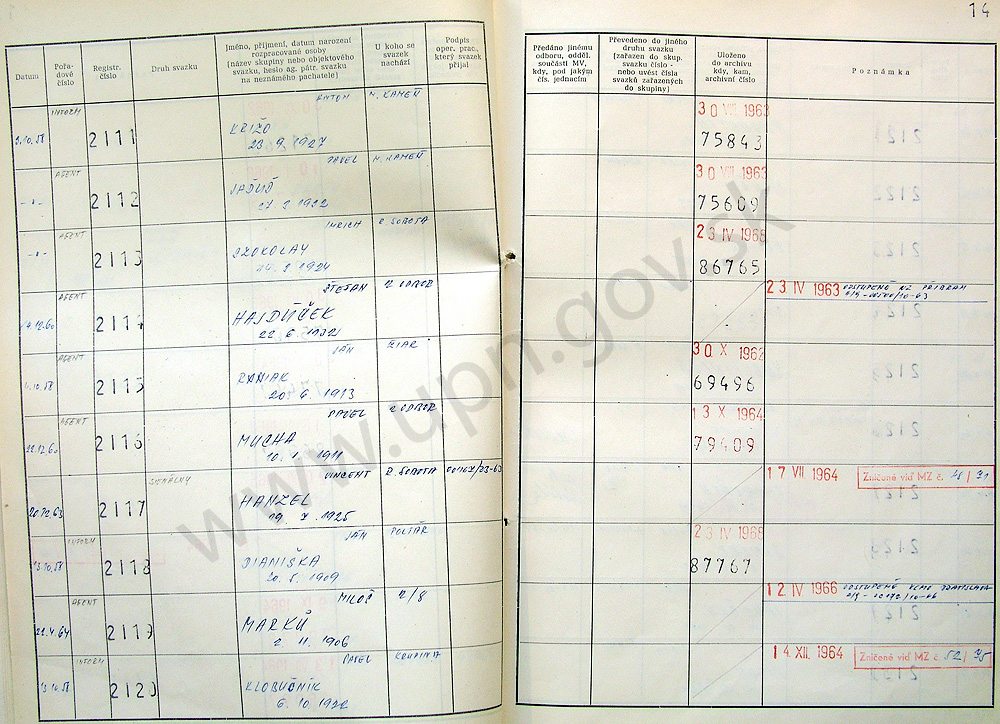 14
Datum
Pořa-
dové
číslo
Registr.
číslo
Druh svazku
Jméno, příjmení, datum narození
rozpracované osoby
(název skupiny nebo objektového
svazku, heslo ag. pátr. svazku
na neznámého pachatele)
U koho se
svazek
nachází
Podpis
oper. prac.,
který svazek
přijal
Předáno jinému
odboru, odděl.
součásti MV,
kdy, pod jakým
čís. jednacím
Převedeno do jiného
druhu svazku
(zařazen do skup.
svazku číslo -
nebo uvést čísla
svazků zařazených
do skupiny)
Uloženo
do archivu
kdy, kam,
archivní číslo
Poznámka
INFORM
ANTON
N. KAMEŇ
2111
KRIŽO
23. 9. 1927
30 VIII 1963
75843
AGENT
PAVEL
N. KAMEŇ
-"-
2112
30 VIII 1963
75609
AGENT
IMRICH
R. SOBOTA
-"-
2113
SZOKOLAY
23 IV 1968
86765
AGENT
ŠTEFAN
2 ODBOR
14.12.60
2114
HAJDÚČEK
22. 6. 1932
23 IV 1963
ODSTUPENÉ NZ PŘIBRAM
AGENT
JÁN
ŽIAR
2115
20. 6. 1913
30 X 1962
69496
AGENT
PAVEL
2 ODBOR
22.12.60
2116
MUCHA
10. 1. 1911
13 X 1964
79409
SIGNÁLNY
VINCENT
R. SOBOTA
20.12.63
2117
HANZEL
19. 7. 1925
17 VII 1964
Zničené viď MZ č.
INFORM
JÁN
POLTÁR
13.10.58
2118
DIANIŠKA
20. 5. 1909
23 IV 1968
87767
AGENT
MILOŠ
2/8
22.4.64
2119
MARKŮ
2. 11. 1906
12 IV 1966
ODSTUPENÉ
INFORM
PAVEL
KRUPINA
13.10.58
2120
KLOBUČNÍK
6. 10. 1922
14 XII. 1964
Zničené viď MZ č. 52/75
www.upn.gov.sk